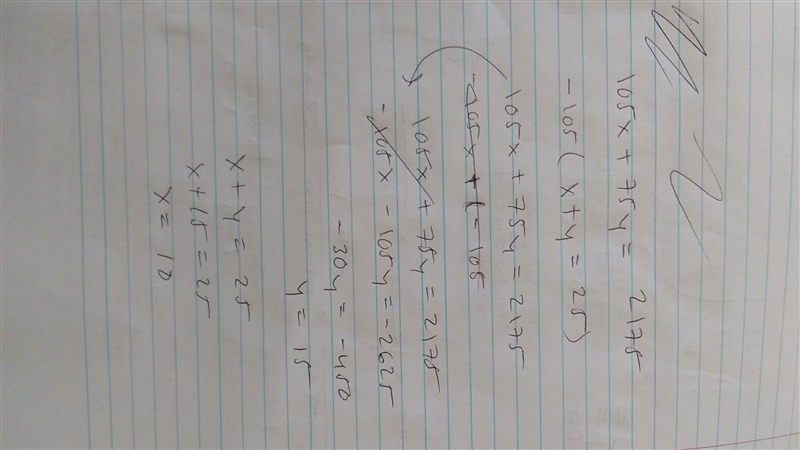 105x + 75y = 2175
-105(x+y = 25)
105x + 75y = 2175
105x + 75y = 2175
-105x - 105y = -2625
-30y = -450
y = 15
x + y = 25
x + 15 = 25
x = 10